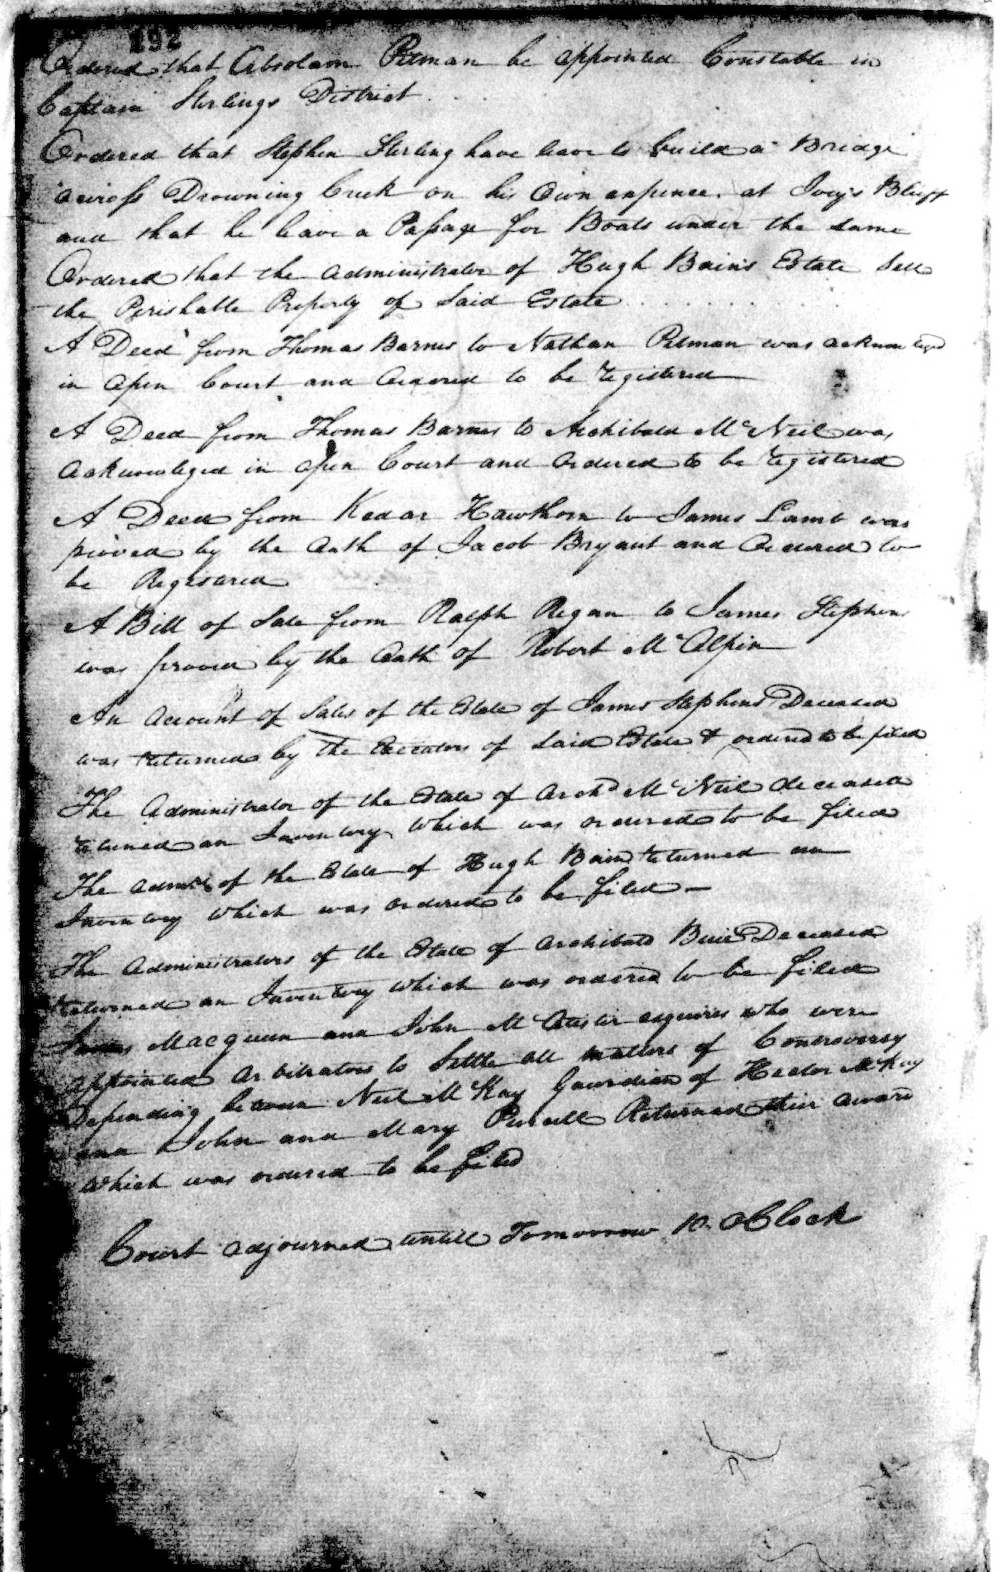 192
Ordered that Absolam Pitman be appointed Constable in
Captain Sterlings District
Ordered that Stephen Sterling have leave to build a Bridge
across Drowning Creek on his Own expence. at Ivey's Bluff
and that he leave a Passage for Boats under the same
Ordered that the administrator of Hugh Bain's Estate Sell
the Perishable Property of Said Estate
A Deed from Thomas Barnes to Nathan Pitman was acknowleged
in Open Court and Ordered to be registered
A Deed from Thomas Barnes to Archibald McNeil was
acknowleged in Open Court and Ordered to be registered
A Deed from Kedar Hawthorn to James Lamb was
proved by the Oath of Jacob Bryant and Ordered to
be Registered
A Bill of Sale from Ralph Regan to James Stephens
was proved by the Oath of Robert McAlpin
An account of Sales of the Estate of James Stephens Deceased
was returned by the Executors of Said Estate & ordered to be filed
The Administrator of the Estate of Archd McNeil deceased
returned an Inventory which was ordered to be filed
The admr of the Estate of Hugh Bain returned an
Inventory which was ordered to be filed
The Administrators of the Estate of Archibald Buie Deceased
returned an Inventory which was ordered to be filed
James Macqueen and John McAlister esquires who were
appointed arbitrators to Settle all matters of Controversy
Depending between Neil McKay Gaurdian of Hector McKay
and John and Mary Purcell Returned their award
which was ordered to be filed
Court adjourned untill Tomorrow 10 oClock